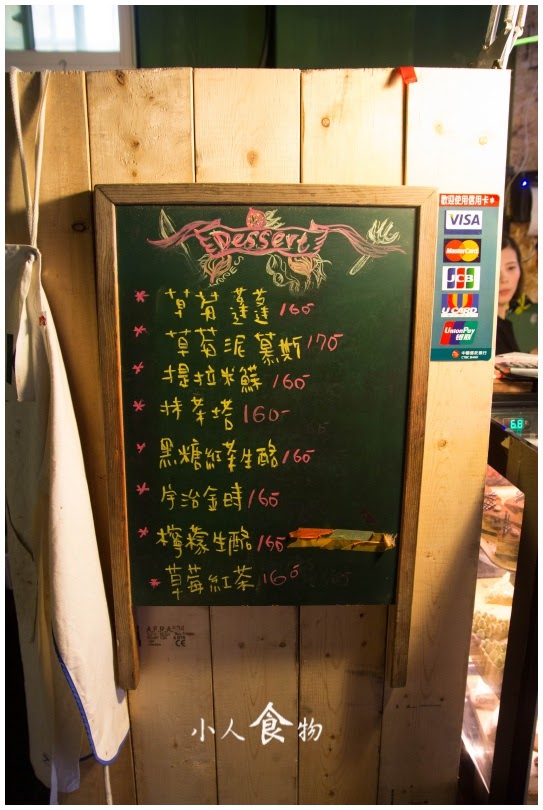 Dessert
* 草莓蓬蓬 160
* 草莓泥慕斯 170
* 提拉米蘇 160
* 抹茶塔 160-
* 黑糖紅茶生酪 160
* 宇治金時 160
* 檸檬生酪 160
* 草莓紅茶 160
歡迎使用信用卡
VISA
MasterCard
JCB
U CARD
UnionPay
银联
中國信託銀行
6.8
小人食物